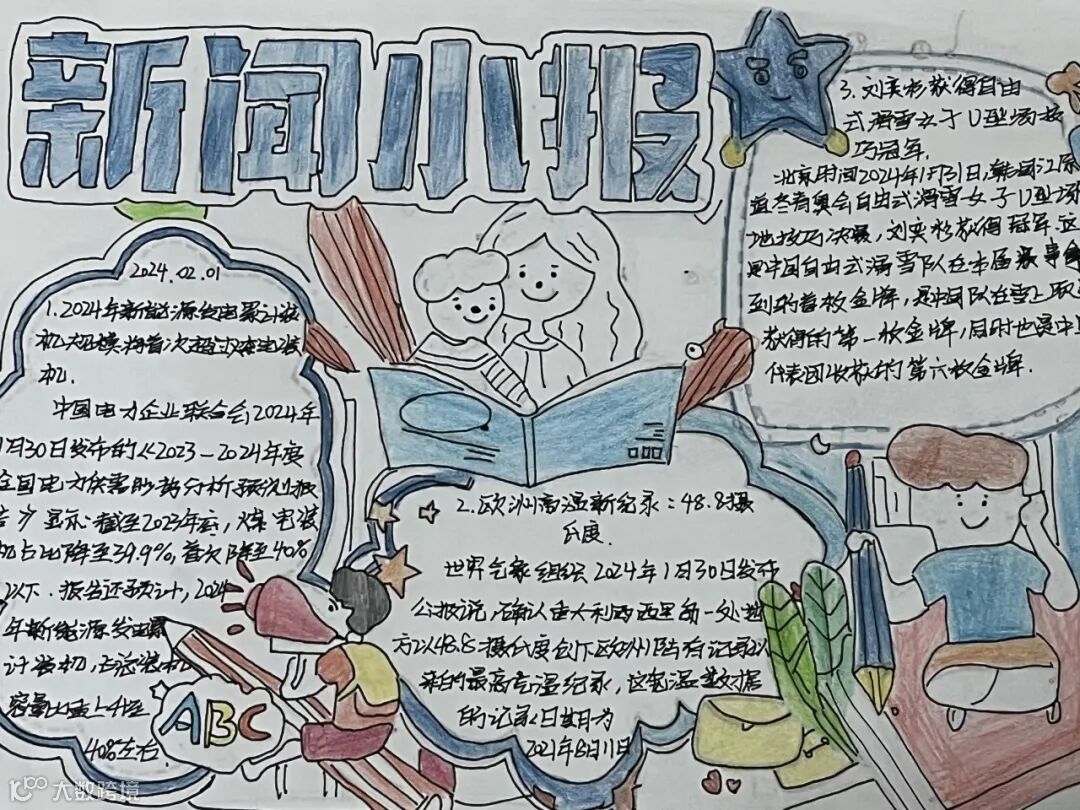 新闻小报
2024.02.01
1.2024年新能源发电累计装
机规模将首次超过煤电装
机.
中国电力企业联合会2024年
1月30日发布的《2023—2024年度
全国电力供需形势分析预测报
告》显示:截至2023年底,煤电装
机占比降至39.9%,首次降至40%
以下.报告还预计,2024
年新能源发电累
计装机,占总装机
容量比重上升至
40%左右.
ABC
2.欧洲高温新纪录:48.8摄
氏度.
世界气象组织2024年1月30日发布
公报说,确认意大利西西里岛一处地
方以48.8摄氏度创下欧洲陆有记录以
来的最高气温纪录,这高温数据
的记录日期为
2021年8月11日
3.刘奕杉获得自由
式滑雪女子U型场技
巧冠军.
北京时间2024年1月31日,韩国江原
道冬青奥会自由式滑雪女子U型场
地技巧决赛,刘奕杉获得冠军.这
是中国自由式滑雪队在本届赛事
到的首枚金牌,是中国队在雪上
获得的第一枚金牌,同时也是中
代表团收获的第六枚金牌.
大数跨境